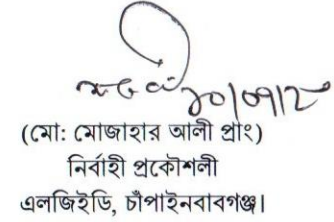 (মো: মোজাহার আলী প্রাং)
নির্বাহী প্রকৌশলী
এলজিইডি, চাঁপাইনবাবগঞ্জ।